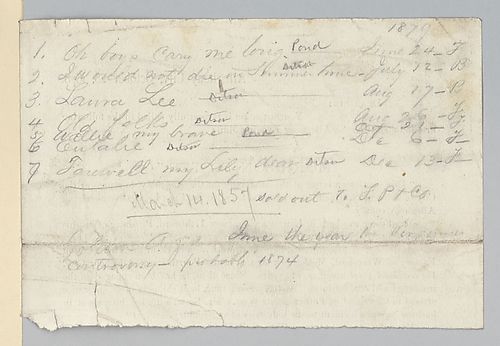 1879
1. Oh boys cary me long Pond June 24 - F
2. I would not die in Summer time - Ditson July 12 - B
3 Laura Lee Ditson Aug 17 - B
4 Old folks Ditson Aug 26 - Fy
5 my brave Pond 21
6 Eulalie Ditson De 6 - F
7 Farewell my Lily dear Ditson Dec 13 - F
March 14. 1857 sold out to F. P & Co.
June the year the
controversy - probably 1874